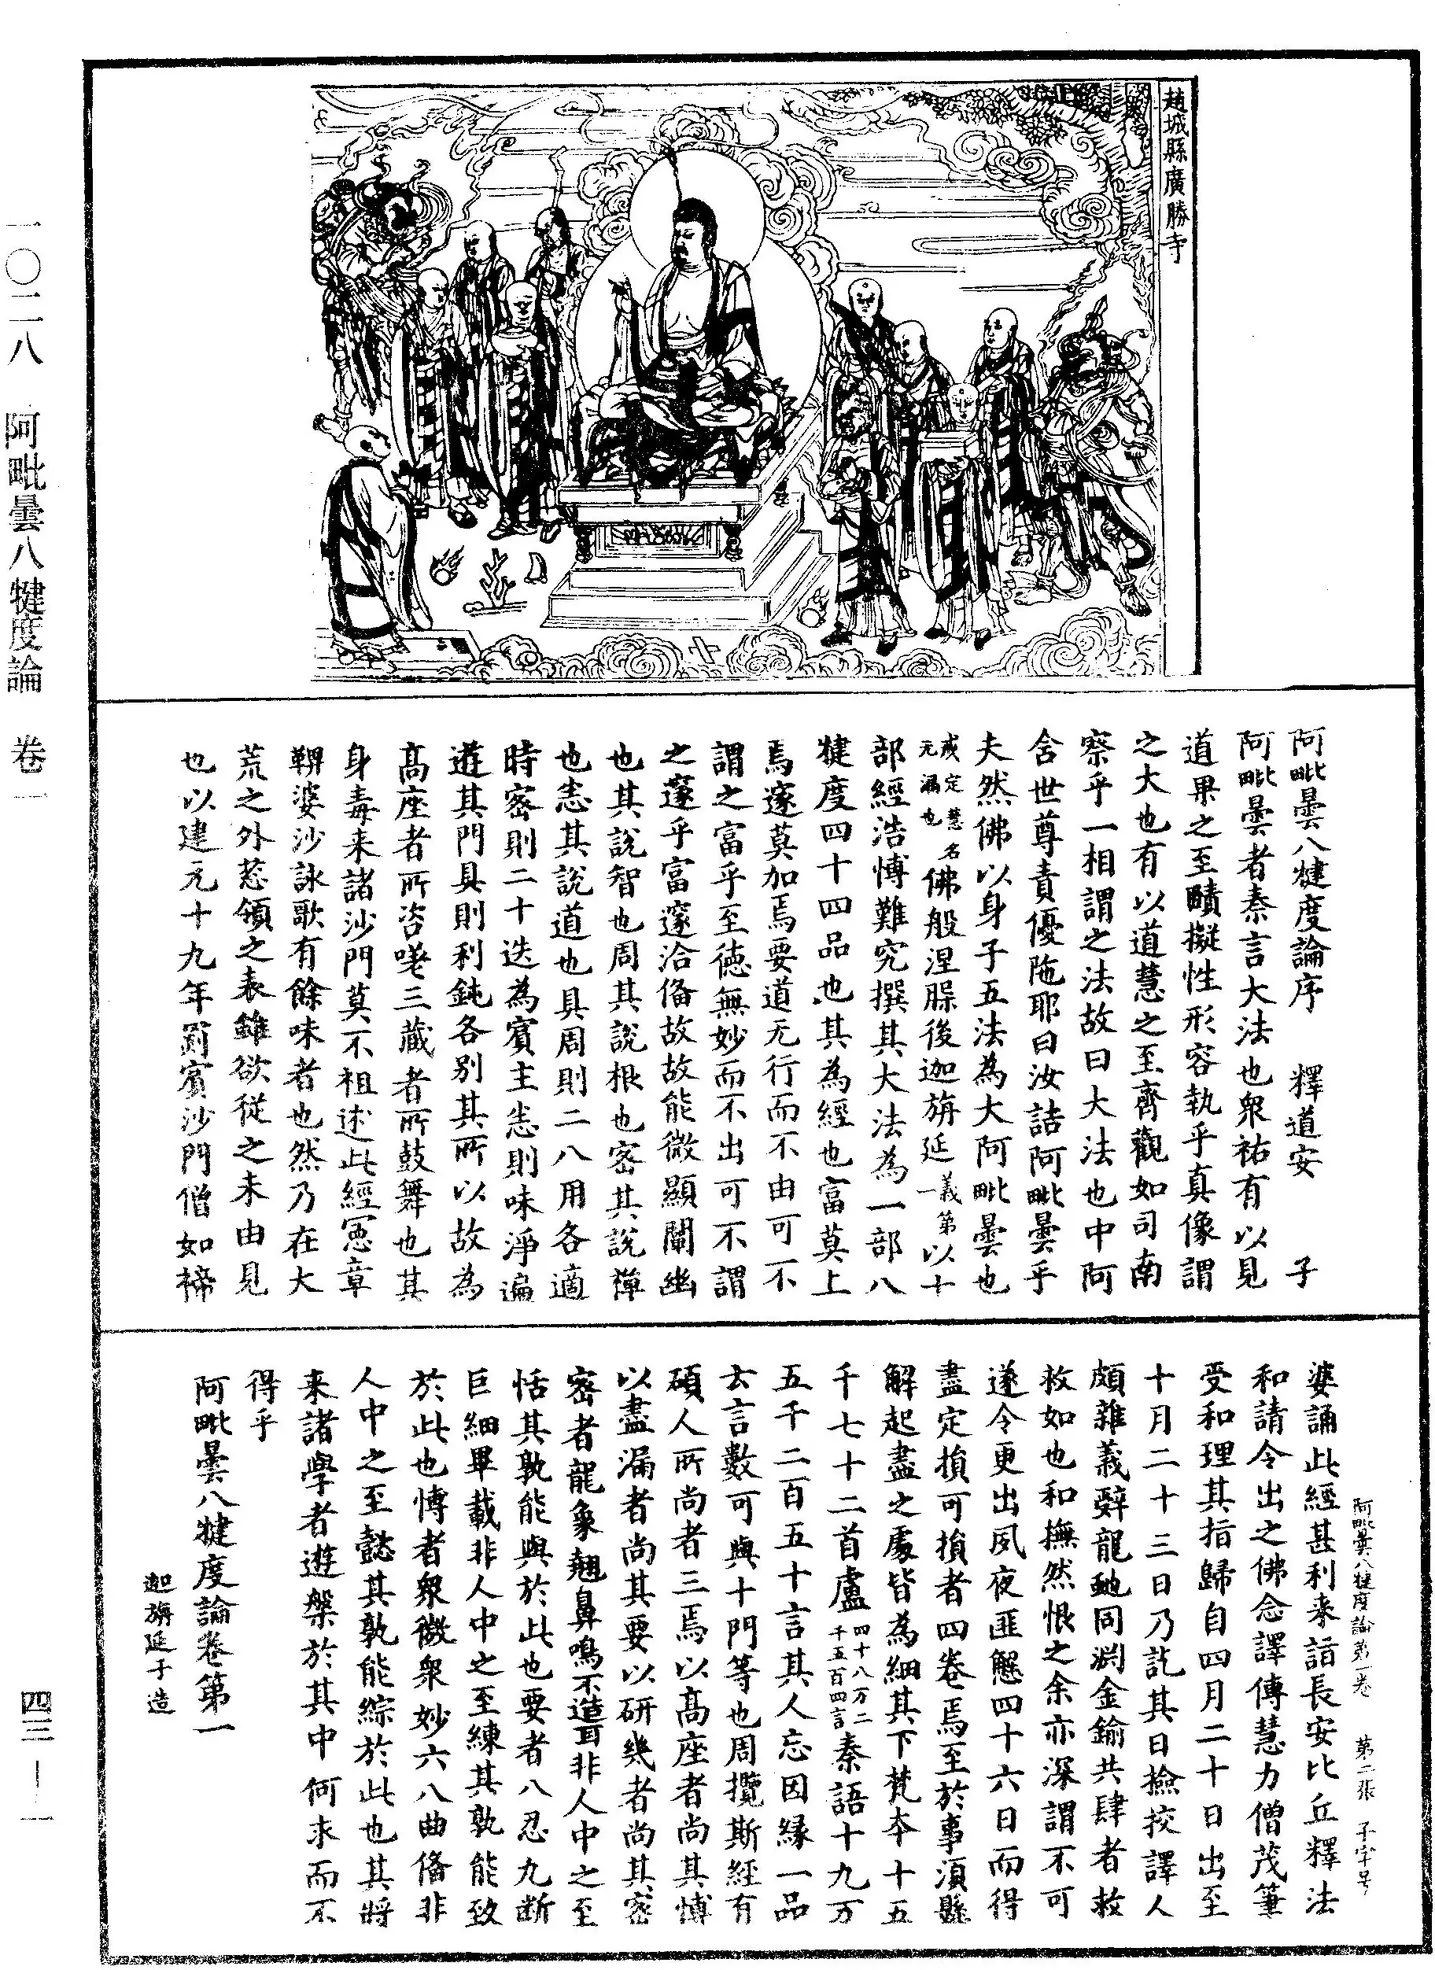 趙城縣廣勝寺
一〇二八 阿毗曇八犍度論 卷一
四三—一
阿毗曇八犍度論序 釋道安 子
阿毗曇者秦言大法也眾祐有以見
道果之至賾擬性形容執乎真像謂
之大也有以道慧之至齊觀如司南
察乎一相謂之法故曰大法也中阿
含世尊責優陁耶曰汝詰阿毗曇乎
夫然佛以身子五法為大阿毗曇也
戒定慧名无漏也佛般涅脲後迦旃延義第一以十
部經浩博難究撰其大法為一部八
犍度四十四品也其為經也富莫上
焉邃莫加焉要道无行而不由可不
謂之富乎至德無妙而不出可不謂
之邃乎富邃洽俻故故能微顯闡幽
也其說智也周其說根也密其說禅
也悉其說道也具周則二八用各適
時密則二十迭為賓主悉則味淨遍
遊其門具則利鈍各別其所以故為
髙座者所咨嗟三藏者所鼓舞也其
身毒来諸沙門莫不祖述此經憲章
鞞婆沙詠歌有餘味者也然乃在大
荒之外葱嶺之表雖欲從之未由見
也以建元十九年罽賓沙門僧如禘
阿毗曇八犍度論第一卷 第二張 子字号
婆誦此經甚利来詣長安比丘釋法
和請令出之佛念譯傳慧力僧茂筆
受和理其指歸自四月二十日出至
十月二十三日乃訖其日撿挍譯人
頗雜義辭龍虵同淵金鍮共肆者㪇
㪇如也和撫然恨之余亦深謂不可
遂令更出夙夜匪懈四十六日而得
盡定損可損者四卷焉至於事湏懸
解起盡之處皆為細其下梵夲十五
千七十二首盧四十八万二千五百四言秦語十九万
五千二百五十言其人忘因緣一品
云言數可與十門等也周攬斯經有
碩人所尚者三焉以髙座者尚其博
以盡漏者尚其要以研幾者尚其密
密者龍象翹鼻鳴不造耳非人中之至
恬其孰能與於此也要者八忍九断
巨細畢載非人中之至練其孰能致
於此也博者衆微衆妙六八曲俻非
人中之至懿其孰能綜於此也其將
来諸學者遊槃於其中何求而不
得乎
阿毗曇八犍度論卷第一
迦旃延子造